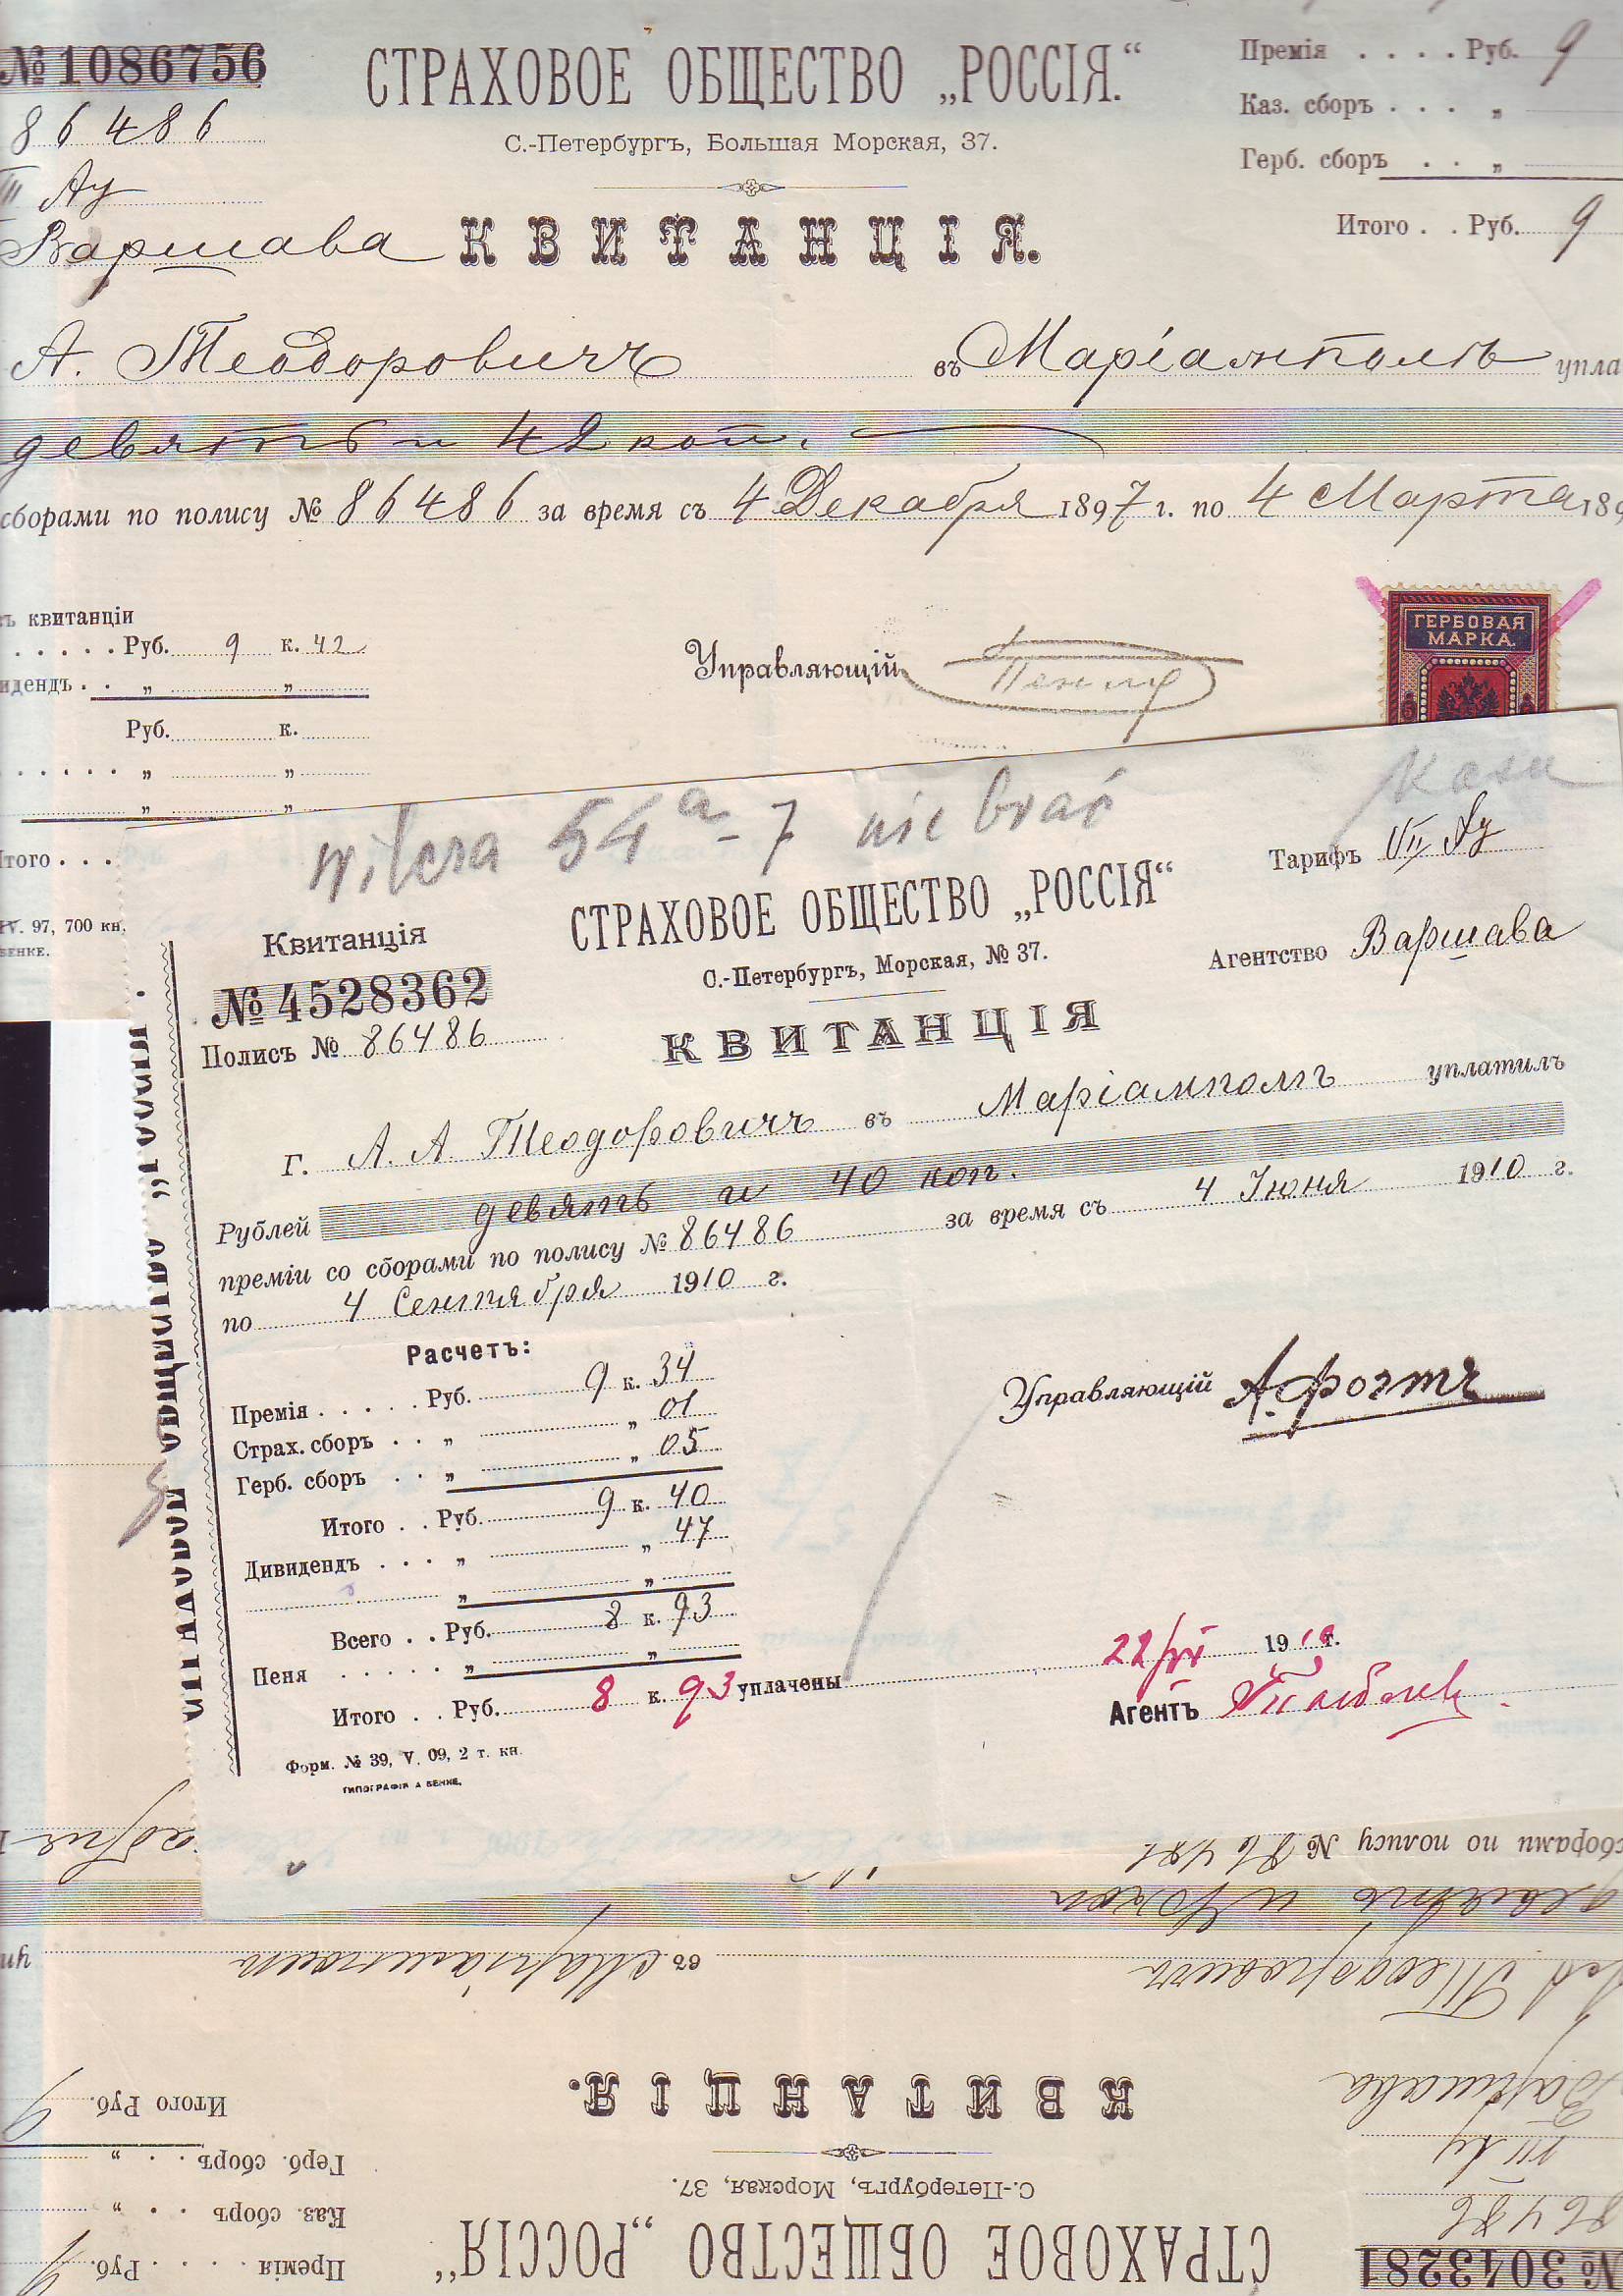 № 1086756
СТРАХОВОЕ ОБЩЕСТВО „РОССІЯ.“
С.-Петербургъ, Большая Морская, 37.
Премія . . . . Руб. 9
Каз. сборъ . . . „
Герб. сборъ . . „
Итого . . Руб. 9
86486
III Ау
Варшава
КВИТАНЦІЯ.
А. Теодоровичъ въ Маріамполѣ упла
девять и 42 коп.
сборами по полису № 86486 за время съ 4 Декабря 1897 г. по 4 Марта 189
ъ квитанціи
. . . . . Руб. 9 к. 42
идендъ . . „ „
Руб. к.
. . . . . . „ „
„ „
Итого . . .
IV. 97, 700 кн.
БЕНКЕ.
Управляющій
ГЕРБОВАЯ
МАРКА.
wilcza 54a-7 nie brać
Тарифъ VII Ау
Агентство Варшава
СТРАХОВОЕ ОБЩЕСТВО „РОССІЯ“
С.-Петербургъ, Морская, № 37.
Квитанція
№ 4528362
Полисъ № 86486
КВИТАНЦІЯ
Г. А. А. Теодоровичъ въ Маріамполѣ уплатилъ
Рублей девять и 40 коп.
преміи со сборами по полису № 86486 за время съ 4 Іюня 1910 г.
по 4 Сентября 1910 г.
Расчетъ:
Премія . . . . . Руб. 9 к. 34
Страх. сборъ . . „ „ 01
Герб. сборъ . . „ „ 05
Итого . . Руб. 9 к. 40
Дивидендъ . . . „ „ 47
„ „
Всего . . Руб. 8 к. 93
Пеня . . . . . „ „
Итого . . Руб. 8 к. 93 уплачены
Управляющій А. Фогтъ
22/VI 1910 г.
Агентъ
Форм. № 39, V. 09, 2 т. кн.
ТИПОГРАФІЯ А БЕНКЕ.
№ 3043281
СТРАХОВОЕ ОБЩЕСТВО „РОССІЯ“
С.-Петербургъ, Морская, 37.
Премія . . . . Руб. 9
Каз. сборъ . . . „
Герб. сборъ . . „
Итого Руб. 9
86486
III Ау
Варшава
КВИТАНЦІЯ.
А. А. Теодоровичъ въ Маріамполѣ уп
девять и 40 коп
сборами по полису № 86486